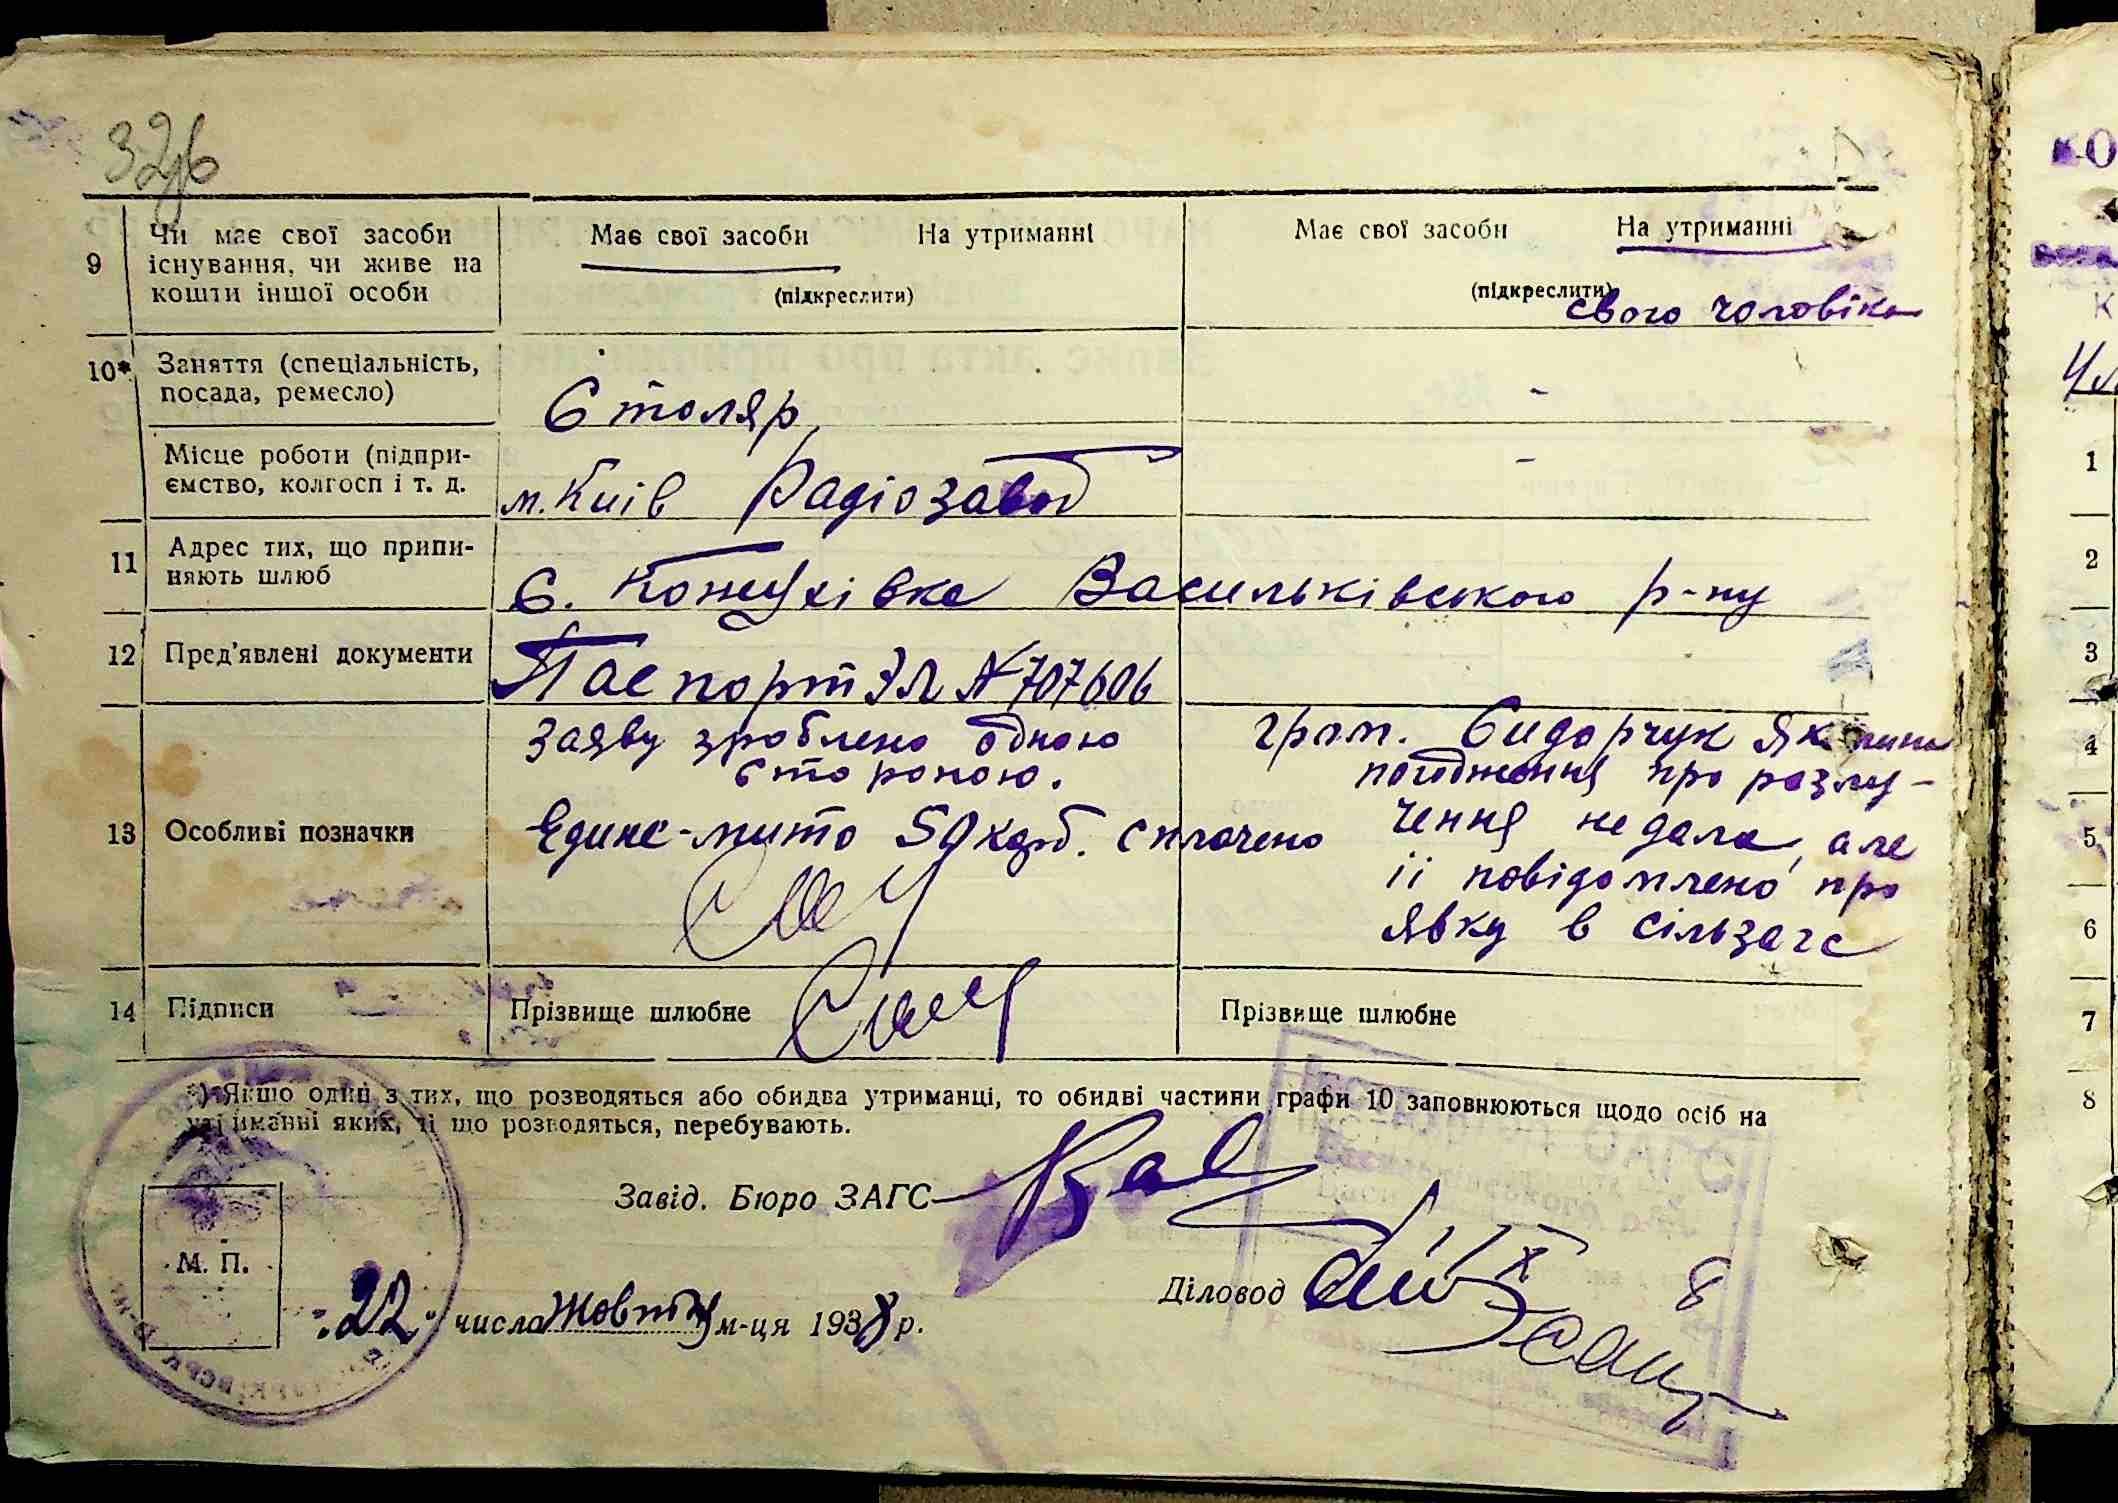 9 Чи має свої засоби існування, чи живе на кошти іншої особи
Має свої засоби На утриманні
(підкреслити)
Має свої засоби На утриманні
(підкреслити)
свого чоловіка
10* Заняття (спеціальність, посада, ремесло)
Столяр
-
Місце роботи (підпри-
ємство, колгосп і т. д.
м. Київ Радіозавод
-
11 Адрес тих, що припи-
няють шлюб
С. Кожухівка Васильківського р-ну
12 Пред'явлені документи
Паспорт ЭЛ № 707606
13 Особливі позначки
заяву зроблено одною
стороною.
Єдине-мито 50 карб. сплачено
гром. Сидорчук Як
погодження про розлу-
чення не дала, але
її повідомлено про
явку в сільзагс
14 Підписи
Прізвище шлюбне
Прізвище шлюбне
*) Якщо один з тих, що розводяться або обидва утриманці, то обидві частини графи 10 заповнюються щодо осіб на
утриманні яких, ті що розводяться, перебувають.
Завід. Бюро ЗАГС
М. П.
Діловод
"22" числа Жовтня м-ця 1938 р.
1
2
3
4
5
6
7
8